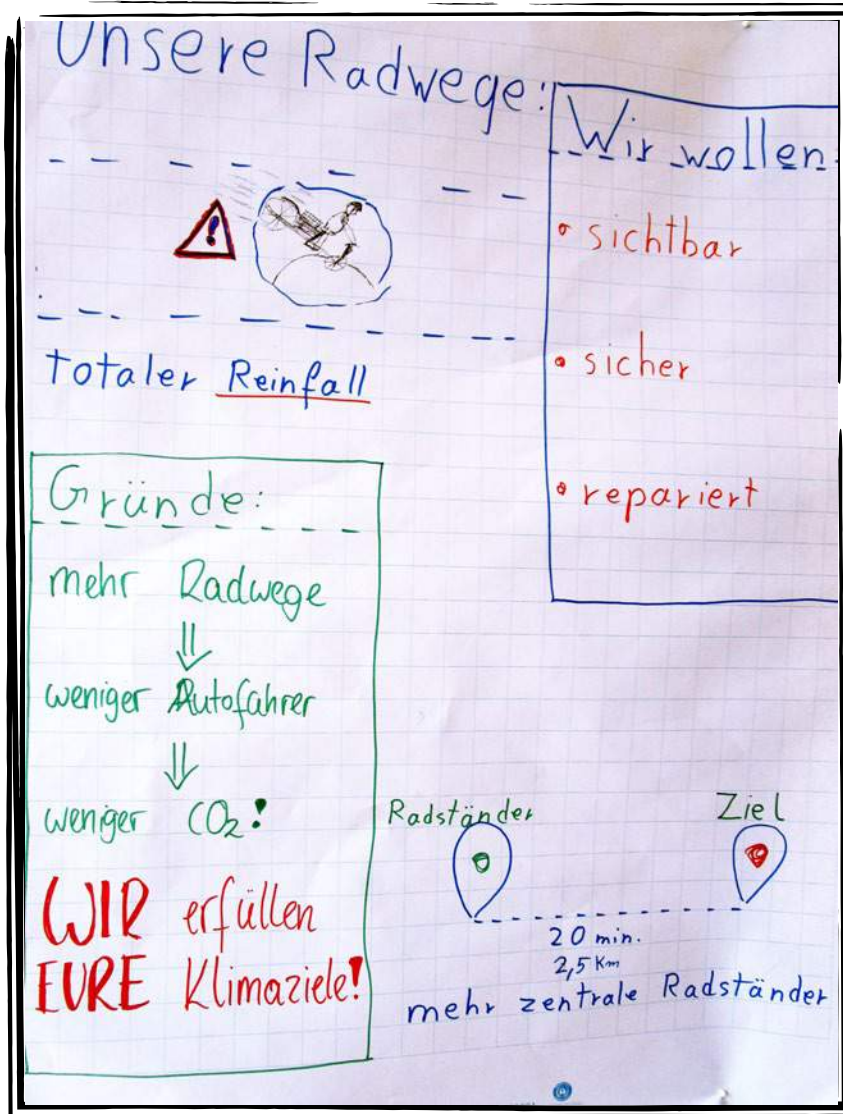 Unsere Radwege:
!
totaler Reinfall
Wir wollen:
• sichtbar
• sicher
• repariert
Gründe:
mehr Radwege
⇓
weniger Autofahrer
⇓
weniger CO₂!
WIR erfüllen
EURE Klimaziele!
Radständer
Ziel
20 min.
2,5 Km
mehr zentrale Radständer